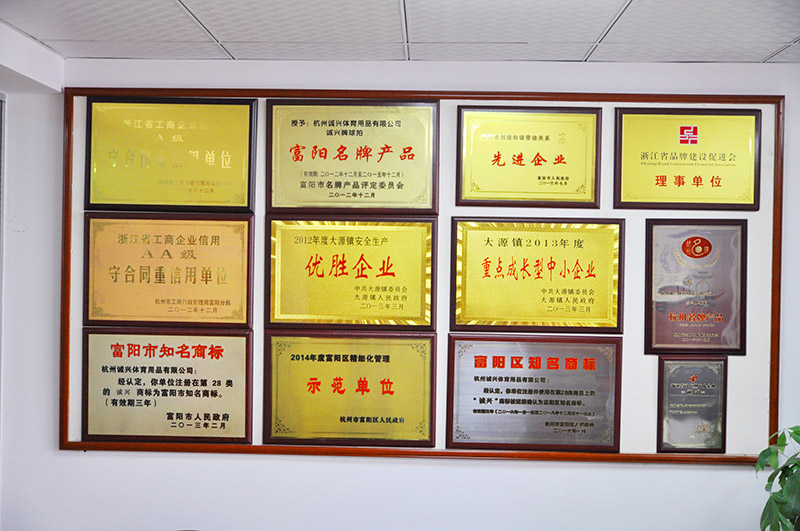 浙江省工商企业信用
A级
守合同重信用单位
授予：杭州诚兴体育用品有限公司
诚兴牌球拍
富阳名牌产品
（有效期：二〇一二年十二月至二〇一五年十二月）
富阳市名牌产品评定委员会
二〇一二年十二月
创建和谐劳动关系
先进企业
富阳市人民政府
浙江省品牌建设促进会
Zhejiang Brand Construction Promotion Association
理事单位
浙江省工商企业信用
AA级
守合同重信用单位
杭州市工商行政管理局富阳分局
二〇一二年十二月
2012年度大源镇安全生产
优胜企业
中共大源镇委员会
大源镇人民政府
二〇一三年三月
大源镇2013年度
重点成长型中小企业
中共大源镇委员会
大源镇人民政府
二〇一三年三月
杭州名牌产品
富阳市知名商标
杭州诚兴体育用品有限公司：
经认定，你单位注册在第 28 类
的 诚兴 商标为富阳市知名商标。
（有效期三年）
富阳市人民政府
二〇一三年二月
2014年度富阳区精细化管理
示范单位
杭州市富阳区人民政府
富阳区知名商标
杭州诚兴体育用品有限公司：
经认定，你单位注册并使用在第28类商品上的
“诚兴”商标被延续确认为富阳区知名商标。
杭州市富阳区人民政府
二〇一六年一月